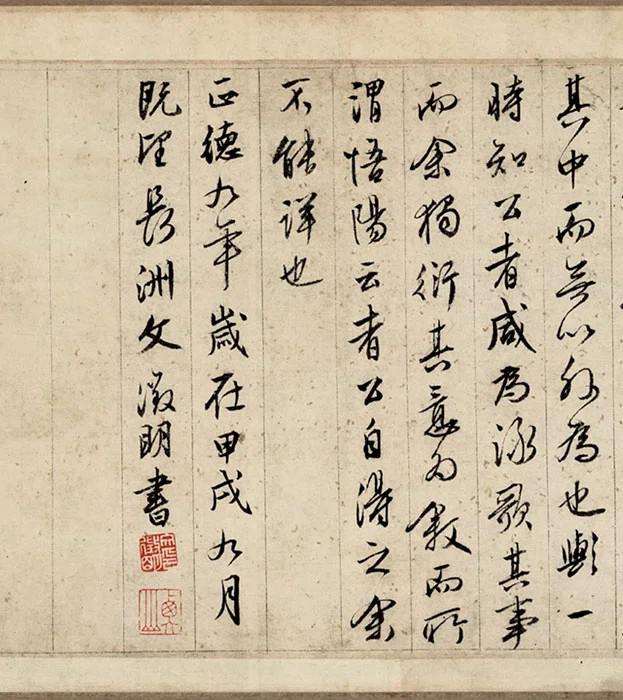 其中而無以外為也輿一
時知公者咸為詠歌其事
而余獨衍其意為敘而所
謂悟陽云者公自得之余
不能詳也
正德九年歲在甲戌九月
既望長洲文徵明書